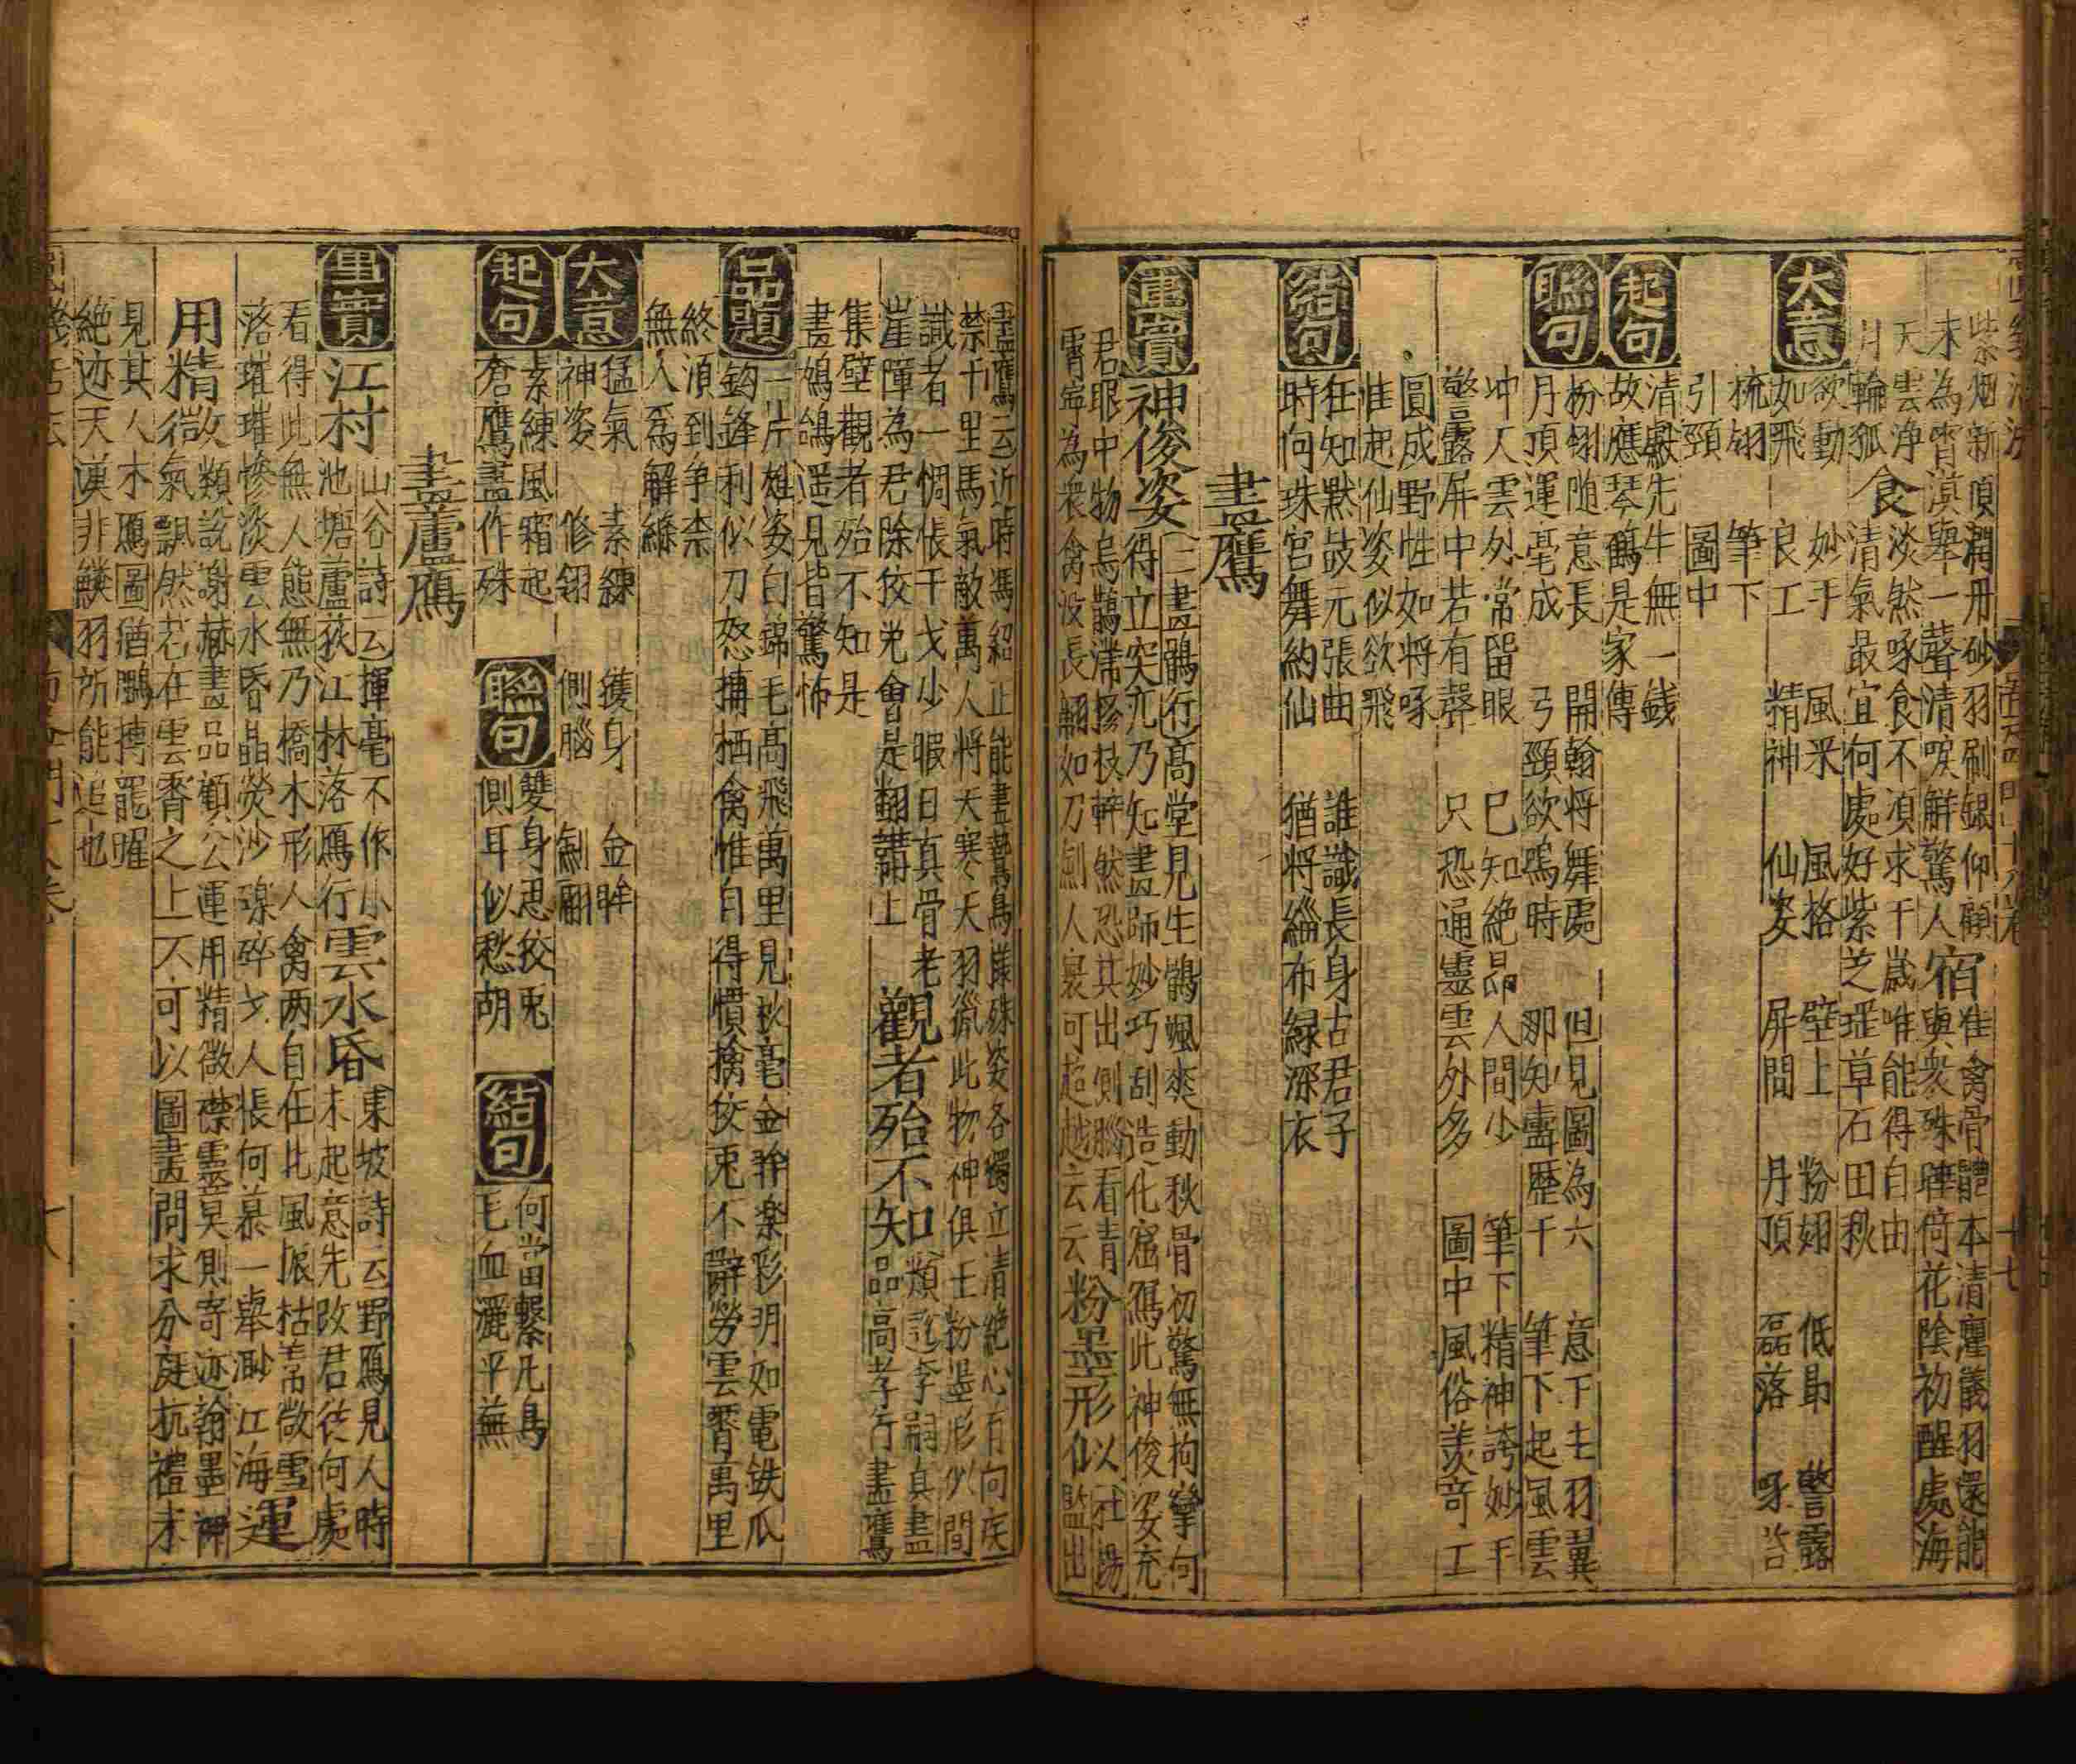 紫烟新頂潤丹砂羽刷銀仰顧
末為霄漠舉一聲清唳觧驚人
宿
准禽骨體本清癯儀羽還能
與衆殊瞱倚花陰初醒處海
天雲浄
月輪孤
食
淡然啄食不湏求千歲唯能得自由
清氣最宜何處好紫芝瑶草石田秋
大意
欲動 妙手 風采 風格 壁上 粉翅 低昻 警露
如飛 良工 精神 仙姿 屏間 丹頂 磊落 啄苔
梳翎 筆下
引頸 圖中
起句
清獻先生無一錢
故應琴鶴是家傳
聮句
粉翎随意長 開翰将舞處 但見圖為六 意下生羽翼
月頂運毫成 弓頸欲鳴時 那知壽歷千 筆下起風雲
冲人雲外常留眼 已知絶品人間少 筆下精神誇妙手
警露屏中若有聲 只恐通靈雲外多 圖中風俗羡奇工
圓成野性如将啄
惟起仙姿似欲飛
結句
任知黙鼓元張曲 誰識長身古君子
時向珠宮舞約仙 猶将緇布緑深衣
畫鷹
事實
神俊姿
畫鶻行高堂見生鶻颯爽動秋骨初驚無拘攣何
得立突兀乃知畫師妙巧刮造化窟寫此神俊姿充
君眼中物烏鵲滿樛枝軒然恐其出側腦看青
霄寜為衆禽没長翮如刀劍人寰可超越云云
粉墨形似
監出
畫鷹云近時馮紹正能畫鷙鳥様殊姿各獨立清絶心有向疾
禁千里馬氣敵萬人将天寒大羽獵此物神俱王粉墨形似間
識者一惆悵干戈少暇日真骨老
崖嶂為君除狡兎會是翻韝上
觀者殆不知
類説李嗣真畫
品高孝行畫鷹
集壁觀者殆不知是
畫鴆鴿遥見皆驚怖
品題
一片雄姿白錦毛高飛萬里見秋毫金眸樂彩明如電鉄爪
鈎鋒利似刀怒搏栖禽惟自得慣擒狡兎不辭勞雲霄萬里
終湏到争柰
無人爲解縧
大意
猛氣 素練 㩳身 金眸
神姿 修翎 側腦 劍翮
起句
素練風霜起
蒼鷹畫作殊
聮句
雙身思狡兎
側耳似愁胡
結句
何當擊凡鳥
毛血灑平蕪
畫蘆鴈
事實
江村
山谷詩云揮毫不作小
池塘蘆荻江林落鴈行
雲水昏
東坡詩云野鴈見人時
未起意先改君従何處
看得此無人態無乃橋木形人禽两自任北風振枯葦微雪
落璀璀慘淡雲水昏晶熒沙礫碎弋人悵何慕一舉渺江海
運
用精微
類説謝赫畫品顧公運用精微襟靈莫測寄迹翰墨神
氣飄然若在雲霄之上不可以圖畫間求分庭抗禮未
見其人木鴈圖猶鵬摶羆曜
絶迹天漢非鱗羽所能追也